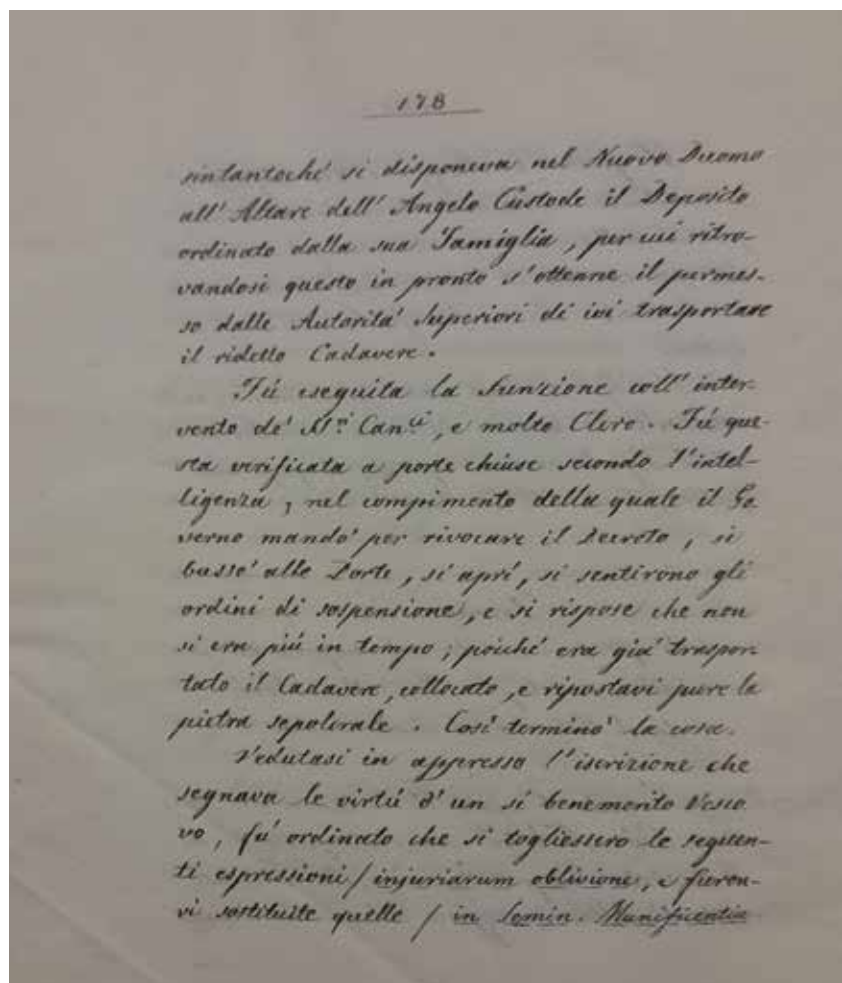 178
sintantoché si disponeva nel Nuovo Duomo
all' Altare dell' Angelo Custode il Deposito
ordinato dalla sua Famiglia, per cui ritro-
vandosi questo in pronto s'ottenne il permes-
so dalle Autorità Superiori di ivi trasportare
il ridetto Cadavere.
Fú eseguita la Funzione coll' inter-
vento de' M.ri Can.ci, e molto Clero. Fú que-
sta verificata a porte chiuse secondo l'intel-
ligenza, nel compimento della quale il Go
verno mandó per rivocare il Decreto, si
bussó alle Porte, si aprí, si sentirono gli
ordini di sospensione, e si rispose che non
si era piú in tempo; poiché era giá traspor-
tato il Cadavere, collocato, e ripostavi pure la
pietra sepolcrale. Cosí terminó la cosa.
Vedutasi in appresso l'iscrizione che
segnava le virtú d'un sí benemerito Vesco
vo, fú ordinato che si togliessero le seguen-
ti espressioni / injuriarum oblivione, e furon-
vi sostituite quelle / in Munificentia